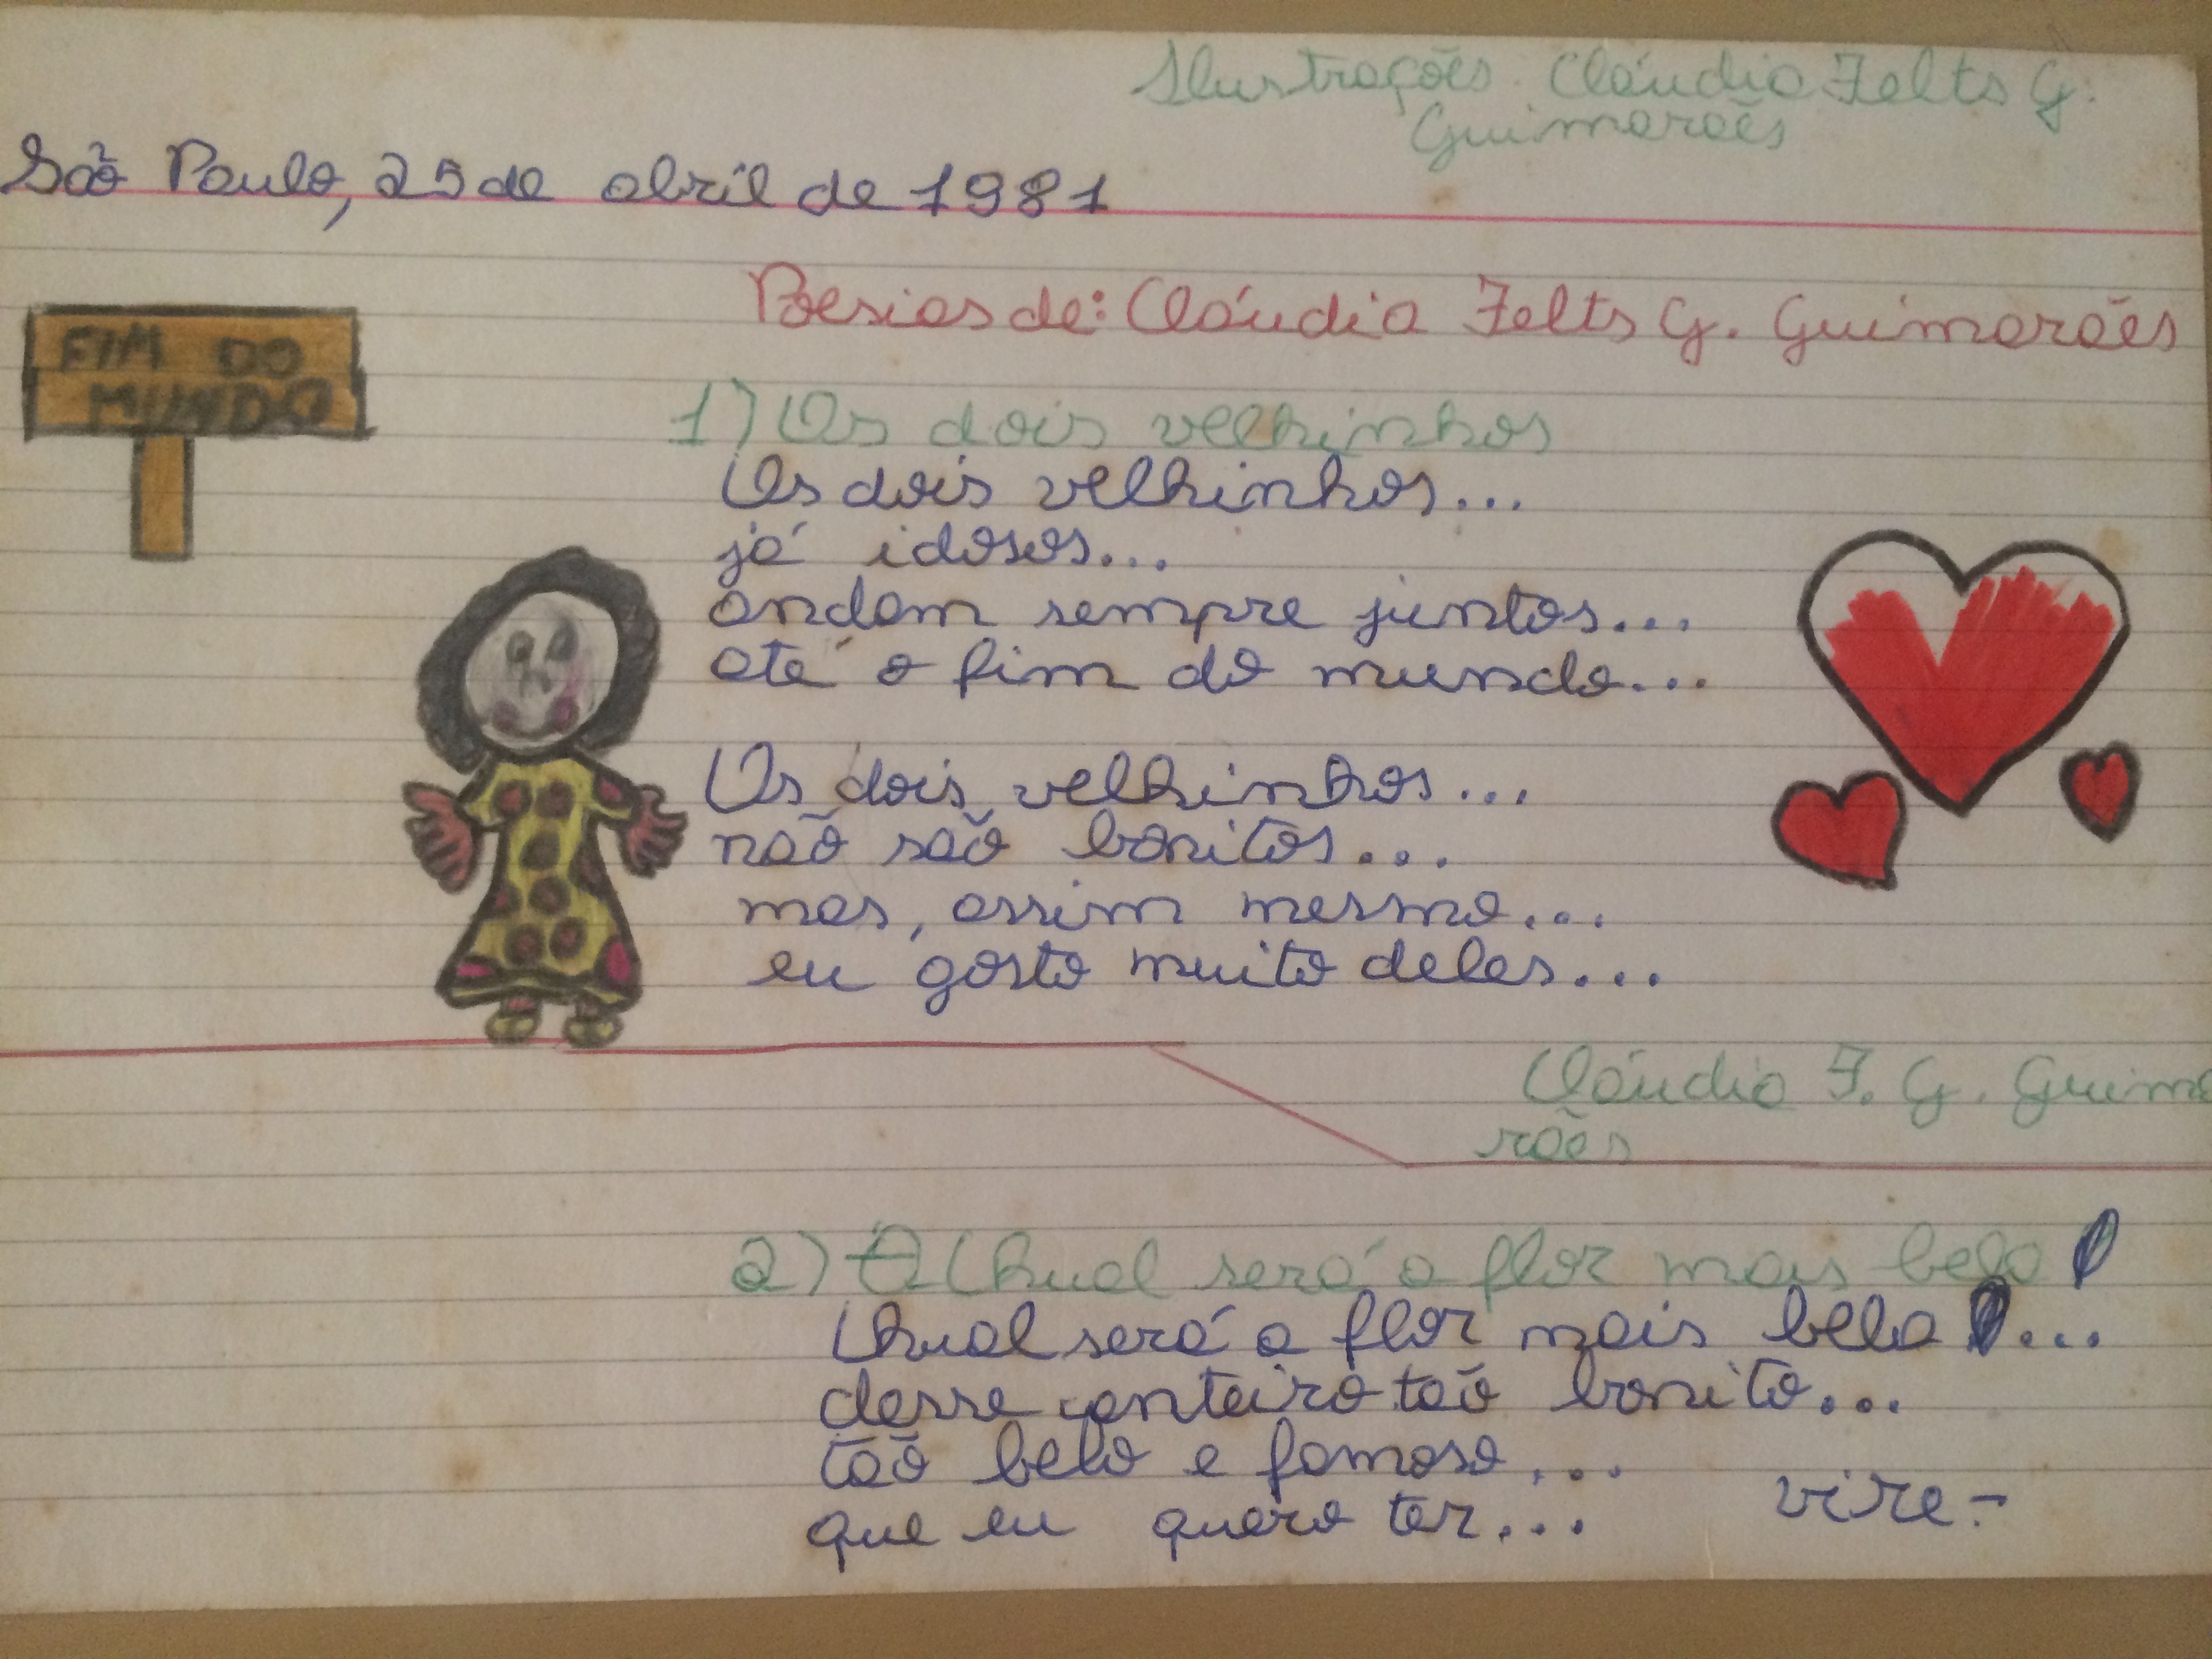 Ilustrações. Cláudia Felts G.
Guimarães
São Paulo, 25 de abril de 1981
Poesias de: Cláudia Felts G. Guimarães
FIM DO
MUNDO
1) Os dois velhinhos
Os dois velhinhos...
já idosos...
andam sempre juntos...
até o fim do mundo...
Os dois velhinhos...
não são bonitos...
mas, assim mesmo...
eu gosto muito deles...
Cláudia F. G. Guima
rães
2) Qual será a flor mais bela
Qual será a flor mais bela...
desse canteiro tão bonito...
tão belo e famoso...
que eu quero ter...
vire-